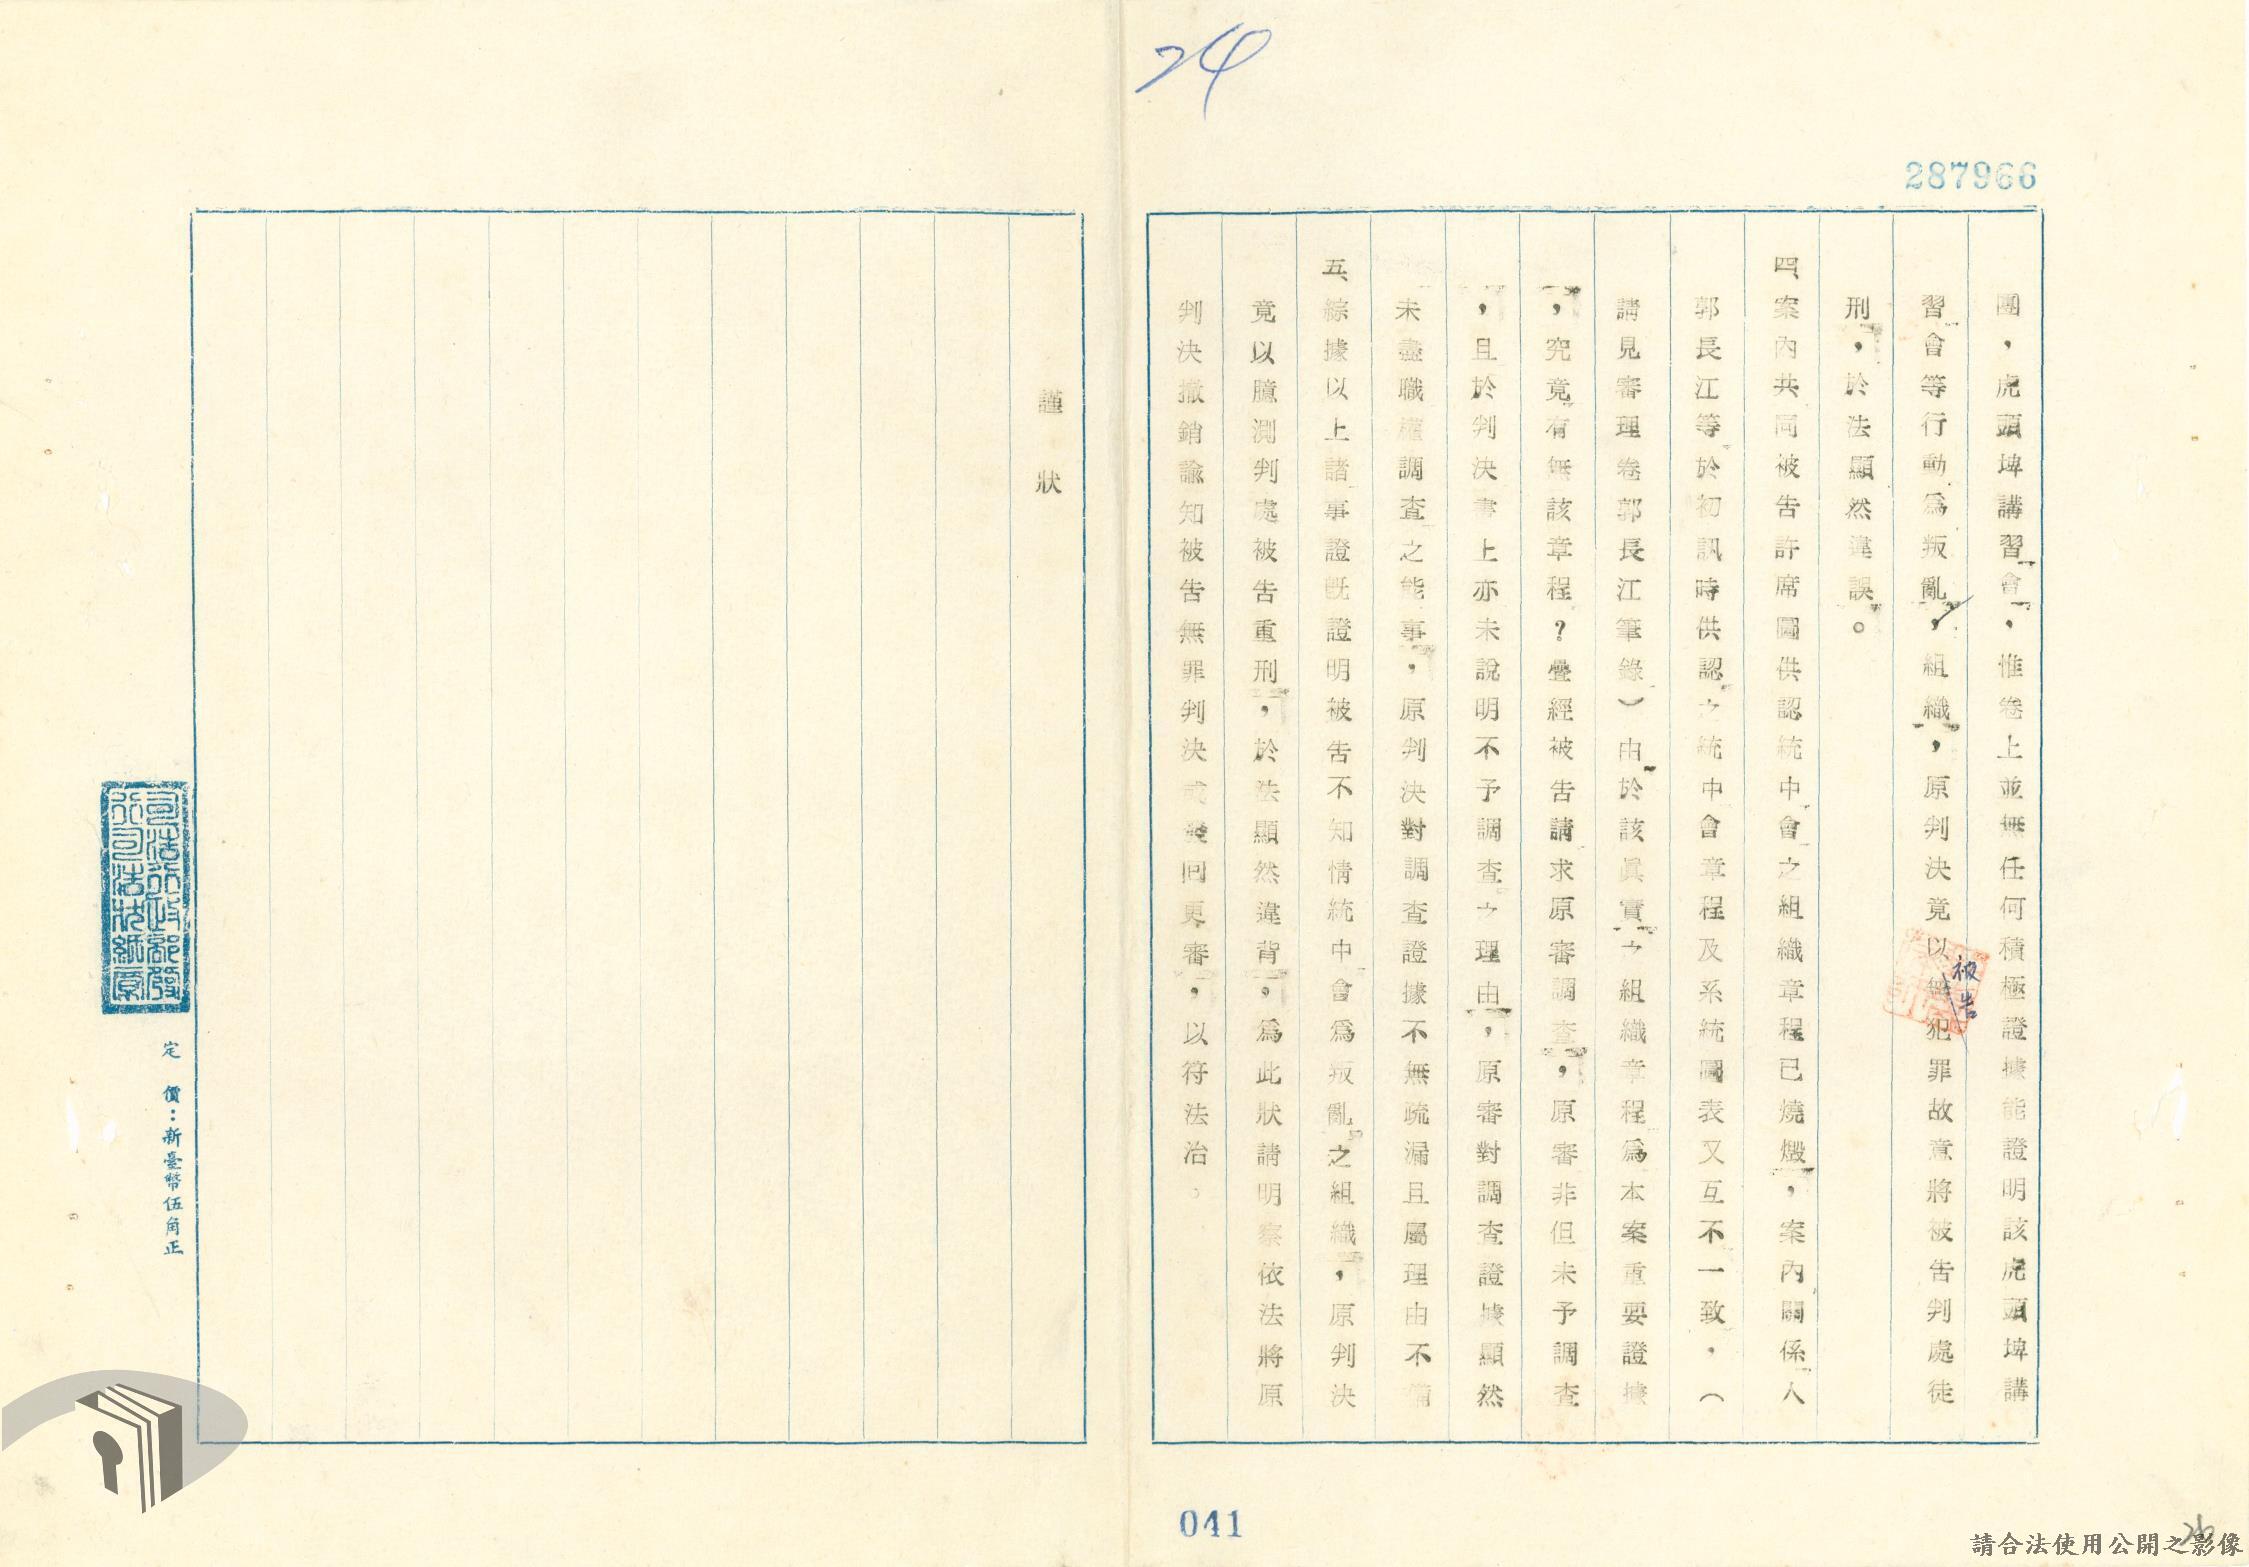 24
287966
團，虎頭埤講習會，惟卷上並無任何積極證據能證明該虎頭埤講
習會等行動為叛亂，組織，原判決竟以無犯罪故意將被告判處徒
被告
刑，於法顯然違誤。
四、案內共同被告許席圖供認統中會之組織章程已燒燬，案內關係人
郭長江等於初訊時供認之統中會章程及系統圖表又互不一致，（
請見審理卷郭長江筆錄）由於該眞實之組織章程為本案重要證據
，究竟有無該章程？疊經被告請求原審調查，原審非但未予調查
，且於判決書上亦未說明不予調查之理由，原審對調查證據顯然
未盡職權調查之能事，原判決對調查證據不無疏漏且屬理由不備
五、綜據以上諸事證既證明被告不知情統中會為叛亂之組織，原判決
竟以臆測判處被告重刑，於法顯然違背。為此狀請明察依法將原
判決撤銷諭知被告無罪判決或發回更審，以符法治。
謹狀
司法行政部發
行司法狀紙原
定價：新臺幣伍角正
041
26
請合法使用公開之影像